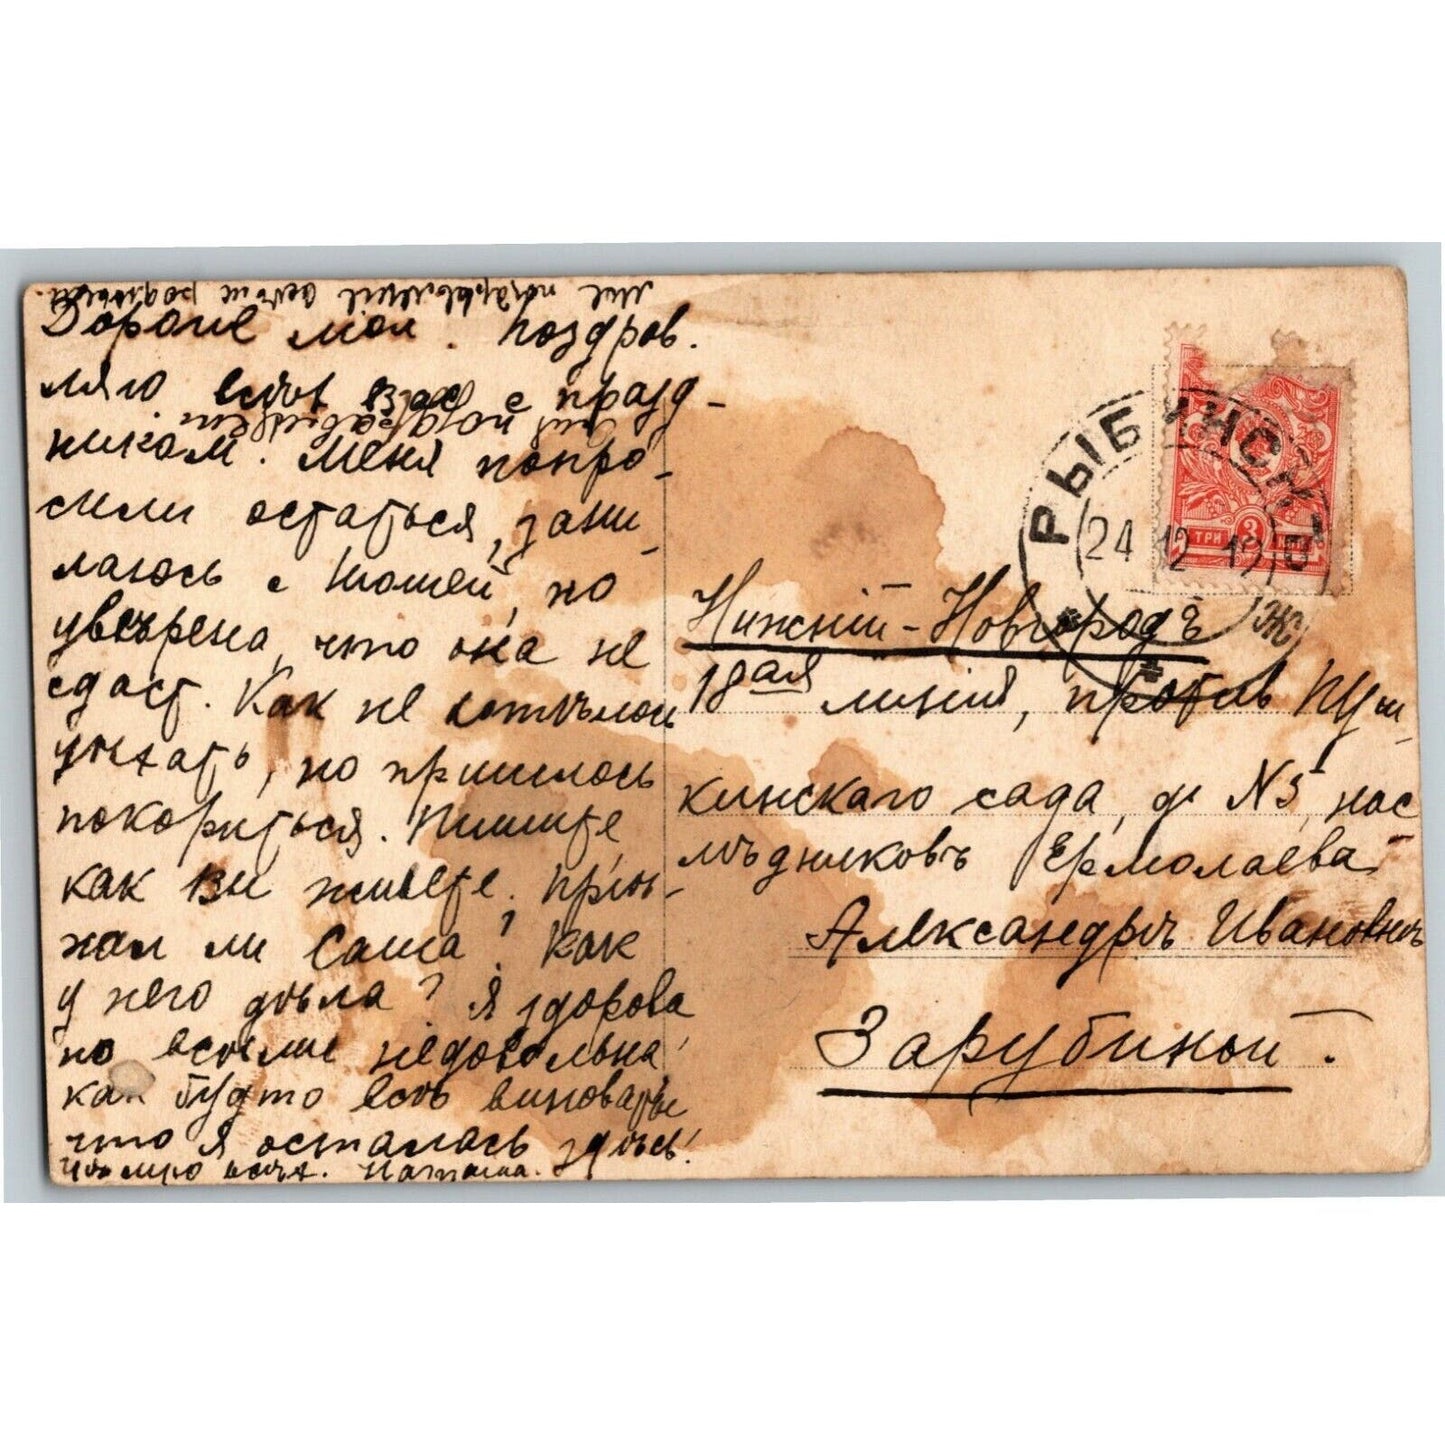 Дорогие мои. Поздров.
ляю всѣх вас с празд-
никам. Меня попро-
сили остаться, зани-
маюсь с Тошей, но
увѣрена, что она не
сдаст. Как не хотѣлось
уѣхать, но пришлось
покориться. Пишите,
как вы живете. Приѣ-
хал ли Саша? Как
у него дѣла? Я здорова
но всѣми недовольна
как будто всѣ виноваты
что я осталась здѣсь!
Цѣлую всѣх. Наташа.
РЫБИНСК
24 12 12
Ж
3
ТРИ
Нижній-Новгородъ
18ая линія, против Пуш-
кинскаго сада, д. N5, нас
лѣдниковъ Ермолаева
Александрѣ Ивановнѣ
Зарубиной.